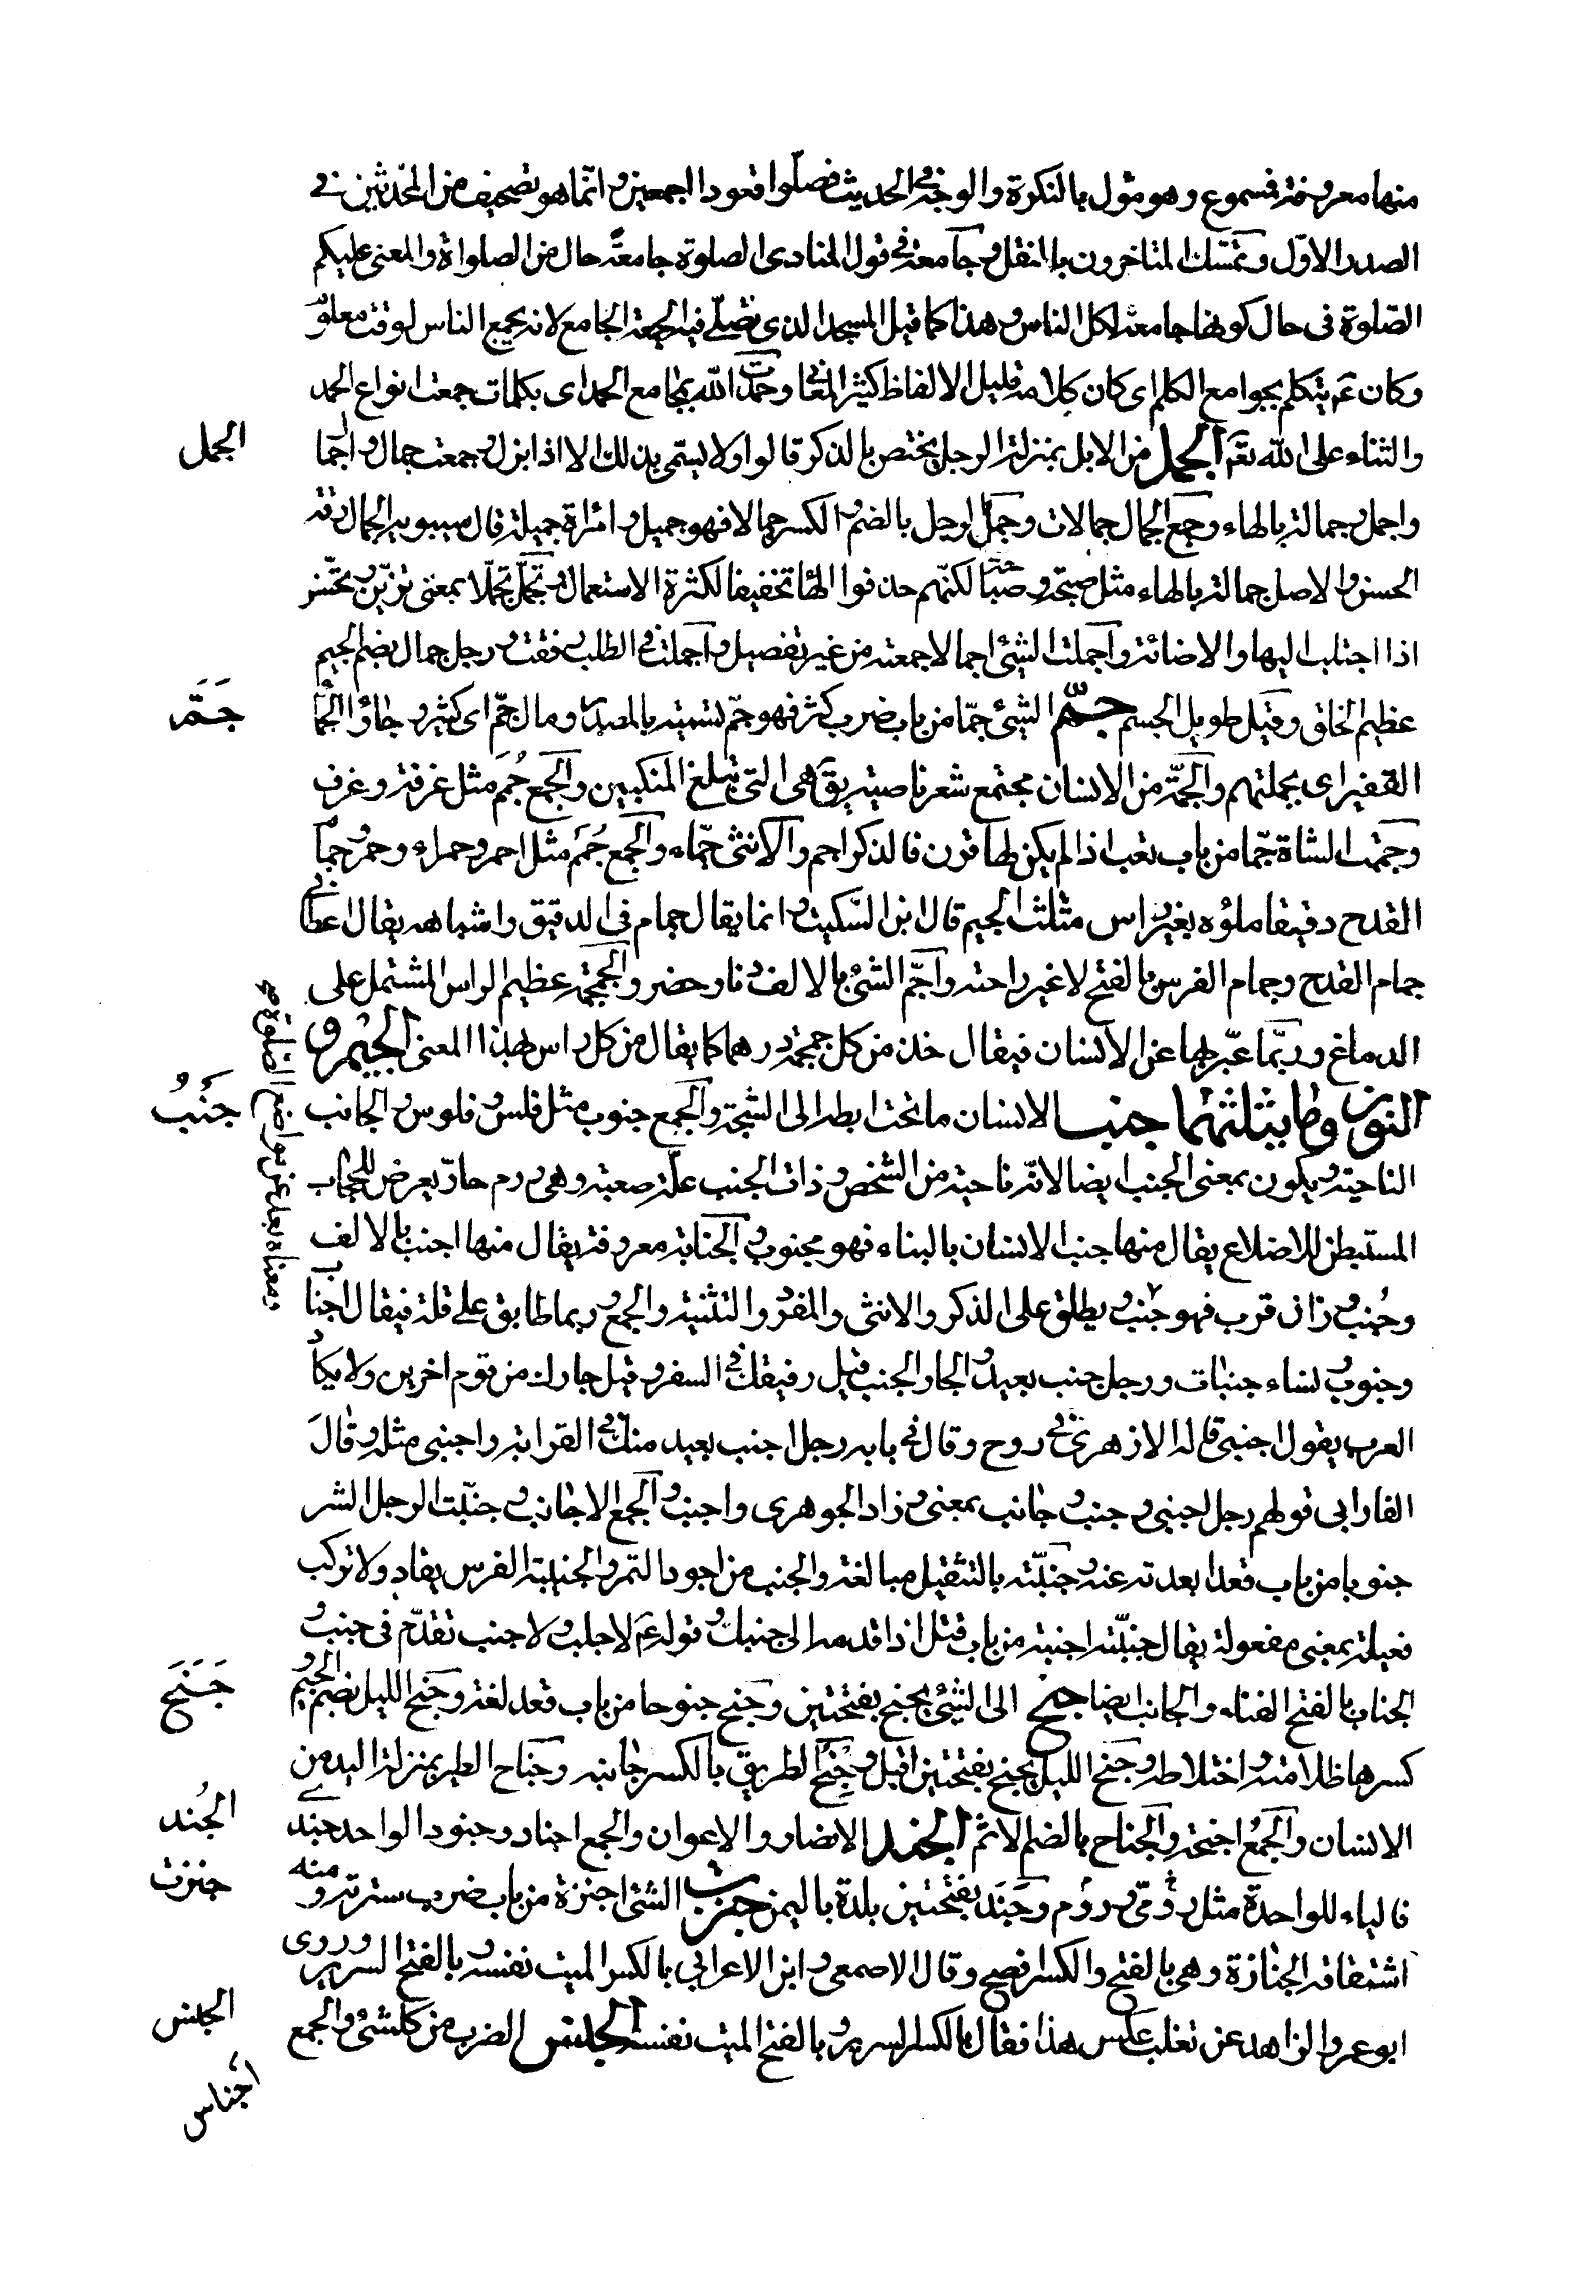 منها معرفة فمسموع وهو مؤل بالنكرة والوجه في الحديث فصلوا قعودا اجمعين وانّما هو تصحيف من المحدثين في
الصدر الاوّل وتمسّك المتاخرون بالنقل و جامعة في قول المنادى الصلوة جامعةً حال من الصلواة والمعنى عليكم
الصّلوة في حال كونها جامعة لكل الناس و هذا كما قيل المسجد الذي تصلّى فيه الجمعة الجامع لانه يجمع الناس لوقت معلوم
وكان عم يتكلم بجوامع الكلم اى كان كلامه قليل الالفاظ كثير المعانى وحمدت الله بمجامع الحمد اى بكلمات جمعت انواع الحمد
والثناء على الله تعم الجمل من الابل بمنزلة الرجل يختص بالذكر قالوا ولا يسمّى بذلك الا اذا بزل و جمعه جمال و اجمال
واجمل و جمالة بالهاء وجمع الجمال جمالات وجمل الرجل بالضم و الكسر جمالا فهو جميل و امراة جميلة قال سيبويه الجمال رقة
الحسن والاصل جمالة بالهاء مثل صبح صباحة لكنّهم حذفوا الهاء تخفيفا لكثرة الاستعمال و تجمّل تجمّلا بمعنى تزيّن و تحسّن
اذا اجتلب البهاء والاضائة واجملت الشئ اجمالا جمعته من غير تفصيل و اجملت في الطلب رفقت و رجل جمال بضم الجيم
عظيم الخلق وقيل طويل الجسم جمّ الشئ جمّا من باب ضرب كثر فهو جمّ تسميته بالمصدر ومال جمّ اى كثير و جاؤا الجمّا
الغفير اى بجملتهم والجمّة من الانسان مجتمع شعر ناصيته يقَ هى التى تبلغ المنكبين والجمع جُمَم مثل غرفة وغرف
وجمّت الشاة جمّا من باب تعب اذا لم يكن لها قرن فالذكر اجم والانثى جمّاء والجمع جُمَم مثل احمر وحمراء وحمر و جمام
القدح دقيقا ملؤه بغير راس مثلثة الجيم قال ابن السّكيت و انما يقال جمام في الدقيق واشباهه يقال اعطانى
جمام القدح وجمام الفرس بالفتح لا غير راحته واجمّ الشئ بالالف دنا وحضر والجمجمة عظم الراس المشتمل على
الدماغ وربّما عبّر بها عن الانسان فيقال خذ من كل جمجمة درهما كما يقال من كل راس بهذا المعنى الجيم و
النون وما يثلثهما جنب الانسان ما تحت ابطه الى الشجة والجمع جنوب مثل فلس و فلوس و الجانب
الناحية و يكون بمعنى الجنب ايضا لانّه ناحية من الشخص و ذات الجنب علّة صعبة وهى ورم حارّ يعرض للحجاب
المستبطن للاضلاع يقال منها جنب الانسان بالبناء فهو مجنوب و الجنابة معروفة يقال منها اجنب بالالف
وجُنب وزان قرب فهو جنب و يطلق على الذكر والانثى والمفرد والتثنية والجمع و ربما طابق على قلة فيقال اجناب
وجنوب و نساء جنبات ورجل جنب بعيد و الجار الجنب قيل رفيقك في السفر و قيل جارك من قوم اخرين ولا يكاد
العرب يقول اجنبى قاله الازهرى في روح وقال في بابه رجل اجنب بعيد منك في القرابة واجنبى مثله وقال
الفارابى قولهم رجل اجنبى و جنب و جانب بمعنى و زاد الجوهرى واجنب و الجمع الاجانب و جنّبت الرجل الشر
جنوبا من باب قعد ابعدته عنه و جنّبته بالتثقيل مبالغة والجنب من اجود التمر والجنيبة الفرس يقاد ولا تركب
فعيلة بمعنى مفعولة يقال جنبته اجنبه من باب قتل اذا قدمه الى جنبك و قوله عم لا جلب و لا جنب تقدّم فى جنب و
الجناب بالفتح الفناء والجانب ايضا جنح الى الشئ يجنح بفتحتين وجنح جنوحا من باب قعد لغة وجنح الليل بضم الجيم و
كسرها ظلامته و اختلاطه و جنح الليل يجنح بفتحتين اقبل و جنح الطريق بالكسر جانبه وجناح الطير بمنزلة اليد من
الانسان والجمع اجنحة والجناح بالضم الاثم الجند الانصار والاعوان والجمع اجناد وجنود الواحد جندى
فالياء للواحدة مثل رومّى و روم وجَنَد بفتحتين بلدة باليمن جنزت الشئ اجنزه من باب ضرب سترته ومنه
اشتقاق الجنازة وهى بالفتح والكسر افصح وقال الاصمعى و ابن الاعرابى بالكسر الميت نفسه و بالفتح السرير و روى
ابو عمر والزاهد عن ثعلب عكس هذا فقال بالكسر السرير و بالفتح الميت نفسه الجنس الضرب من كل شئ والجمع
اجناس
الجمل
جَمَّ
جَنْبُ
جَنَحَ
الجُند
جنزت
الجنس